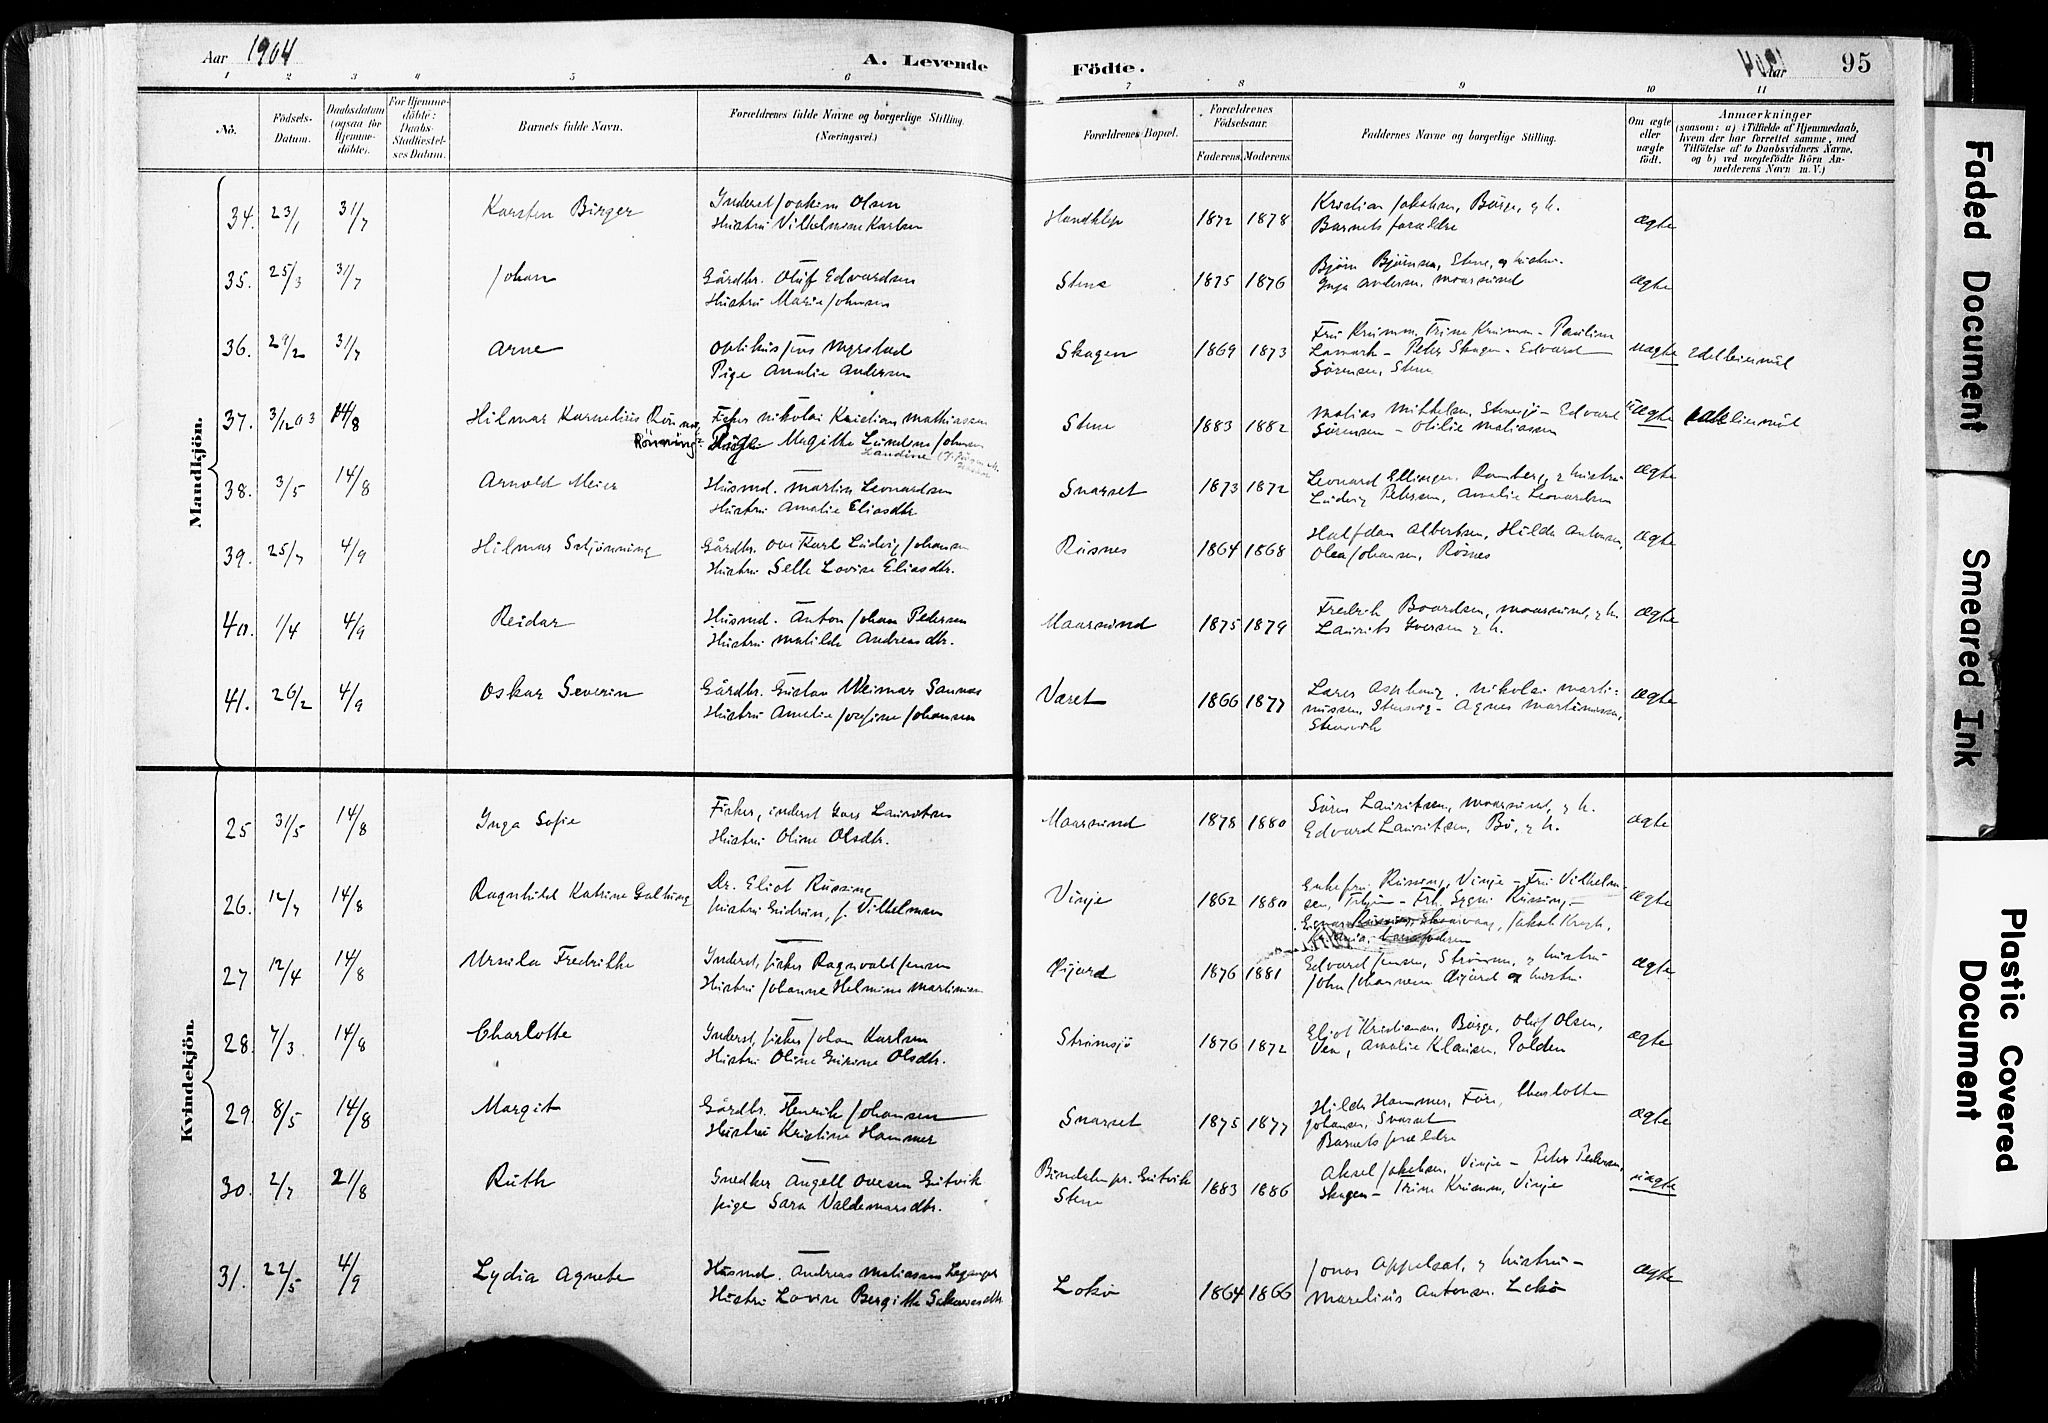 Aar 1904
A. Levende
Födte.
Aar
95
1 2 3 4 5 6 7 8 9 10 11
Nö.
Födsels-Datum.
Daabsdatum (ogsaa for Hjemme-döbte).
For Hjemme-döbte: Daabs-Stadfæstel-ses Datum.
Barnets fulde Navn.
Forældrenes fulde Navne og borgerlige Stilling. (Næringsvei.)
Forældrenes Bopæl.
Forældrenes Födselsaar.
Faderens. Moderens.
Faddernes Navne og borgerlige Stilling.
Om ægte eller uægte födt.
Anmærkninger
(saasom: a) i Tilfælde af Hjemmedaab,
hvem der har forrettet samme, med
Tilföielse af to Daabsvidners Navne,
og b) ved uægtefödte Börn An-
melderens Navn m. V.)
Mandkjön.
34. 23/1 31/7 Karsten Birger Inderst Joakim Olsen
Hustru Vilhelmine Karlsen
1872 1878 Kristian Jakobsen, Börge, & h.
Barnets forældre
ægte
35. 25/3 31/7 Johan Gårdbr. Oluf Edvardsen
Hustru Marie Johnsen
Stene 1875 1876 Bjørn Bjørnsen, Stene, og hustru.
Inga Andersen, Maarsund
ægte
36. 29/2 31/7 Arne Optikus Jens Myrstad
Pige Amalie Andersen
Skagen 1869 1873 Fru Krumm, Trine Krumm - Pauline
- Peter Skagen - Edvard
Sørensen, Stene
uægte 2det leiermål
37. 3/12 03 14/8 Hilmar Kornelius
Rönning
Fisker Nikolai Kristian Mathiassen
Pige Magitta Lundine Johnsen
Landine
Stene 1883 1882 Matias Mikkelsen, - Edvard
Sørensen - Otilie Matiassen
uægte leiermål
38. 3/5 14/8 Arnold Meier Husmd. Martin Leonardsen
Hustru Amalie Eliasdtr.
Snarset 1873 1872 Leonard Ellingsen, Ramberg, & hustru
Ludvig Petersen, Amalie Leonardsen
ægte
39. 25/7 4/9 Hilmar Stjønning Gårdbr. Ove Karl Ludvig Johansen
Hustru Selle Lovise Eliasdtr.
Rüsnes 1864 1868 Halfdan Albertsen, Hilda Antonsen,
Olea Johansen, Rösnes
ægte
40. 1/4 4/9 Reidar Husmd. Anton Johan Pedersen
Hustru Matilde Andreasdtr.
Maarsund 1875 1879 Fredrik Baardsen, Maarsund, & h.
Laurits Iversen & h.
ægte
41. 26/2 4/9 Oskar Severin Gårdbr. Gustav Weimar Sannes
Hustru Amalie Josefine Johansen
Været 1866 1877 Lars Asphaug. Nikolai Marti-
nussen, Stensvig - Agnes Martinussen,
Stensvik
ægte
Kvindekjön.
25 31/5 14/8 Inga Sofie Fisker, inderst Lars Lauritsen
Hustru Oline Olsdtr.
Maarsund 1878 1880 Sören Lauritsen, Maarsund, & h.
Edvard Lauritsen, Bö, & h.
ægte
26. 12/7 14/8 Ragnhild Katrine Galtung Dr. Eliot Rüssing
Hustru Gudrun, f. Vilhelmsen
Vinje 1862 1880 Enkefru Rüssing, Vinje - Fru Vilhelm-
sen, - Frk. Rüssing -
Jakob Krogh,
ægte
27 12/4 14/8 Ursula Fredrikke Inderst, fisker Ragnvald Jensen
Hustru Johanne Helmine Martinsen
Øijord 1876 1881 Edvard Jensen, Strömsö, & hustru
John Johannesen Øijord og hustru.
ægte
28. 7/3 14/8 Charlotte Inderst, fisker Johan Karlsen
Hustru Oline Olsdtr.
Strömsjö 1876 1872 Eliot Kristiansen, Börge, Oluf Olsen,
Vea, Amalie Klausen, Polden
ægte
29. 8/5 14/8 Margit Gårdbr. Henrik Johansen
Hustru Kristine Hammer
Snarset 1875 1877 Hilda Hammer, Före, Charlotte
Johansen, Snarset
Barnets forældre
ægte
30. 2/7 21/8 Ruth Snedker Angell Ovesen Gutvik
pige Sara Valdemarsdtr.
Bindalen pr. Gutvik
Stene
1883 1886 Aksel Jakobsen, Vinje - Peter Pedersen,
Skagen - Trine Krumm, Vinje
uægte
31. 22/5 4/9 Lydia Agnete Husmd. Andreas Matiassen
Hustru Lovise Bergitte
1864 1866 Jonas Appelsat, & hustru -
Marelius Antonsen
ægte
Faded Document
Smeared Ink
Plastic Covered Document